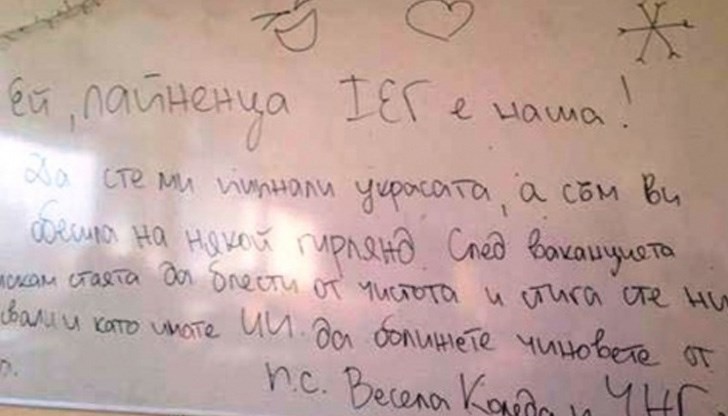 Ей, лайненца IЕГ е наша!
Да сте ми пипнали украсата, а съм ви
обесила на някой гирлянд. След ваканцията
искам стаята да блести от чистота и стига сте ни
като имате ИИ. да ближете чиновете от
п.с. Весела Коледа и ЧНГ